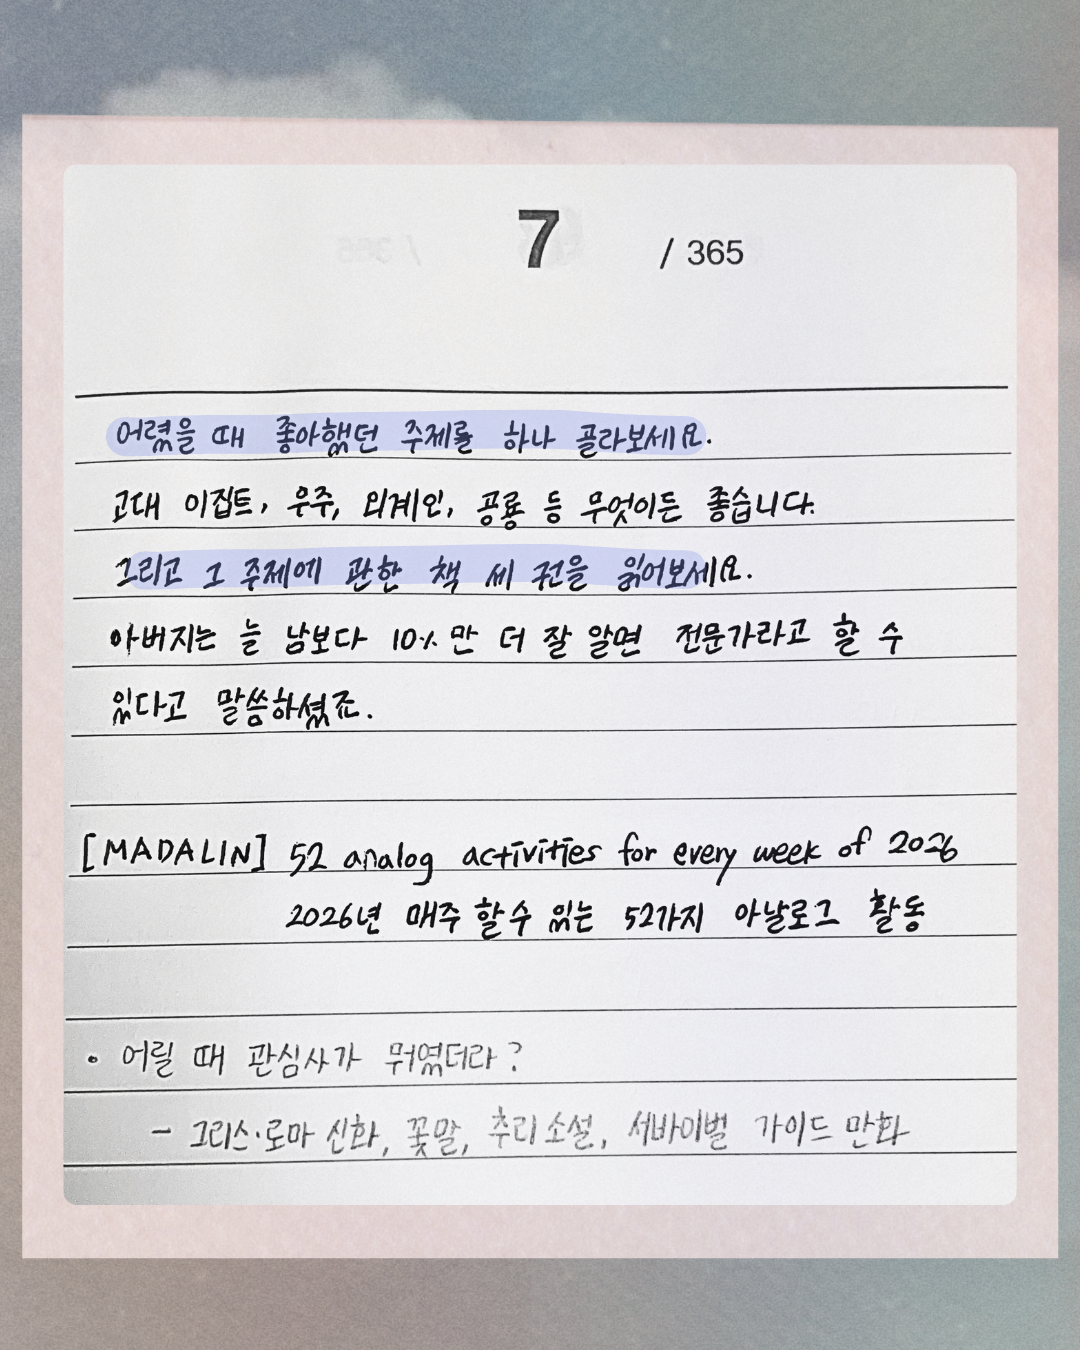 7 / 365
어렸을 때 좋아했던 주제를 하나 골라보세요.
고대 이집트, 우주, 외계인, 공룡 등 무엇이든 좋습니다.
그리고 그 주제에 관한 책 세 권을 읽어보세요.
아버지는 늘 남보다 10%만 더 잘 알면 전문가라고 할 수
있다고 말씀하셨죠.
[MADALIN] 52 analog activities for every week of 2026
2026년 매주 할 수 있는 52가지 아날로그 활동
• 어릴 때 관심사가 뭐였더라?
- 그리스·로마 신화, 꽃말, 추리소설, 서바이벌 가이드 만화